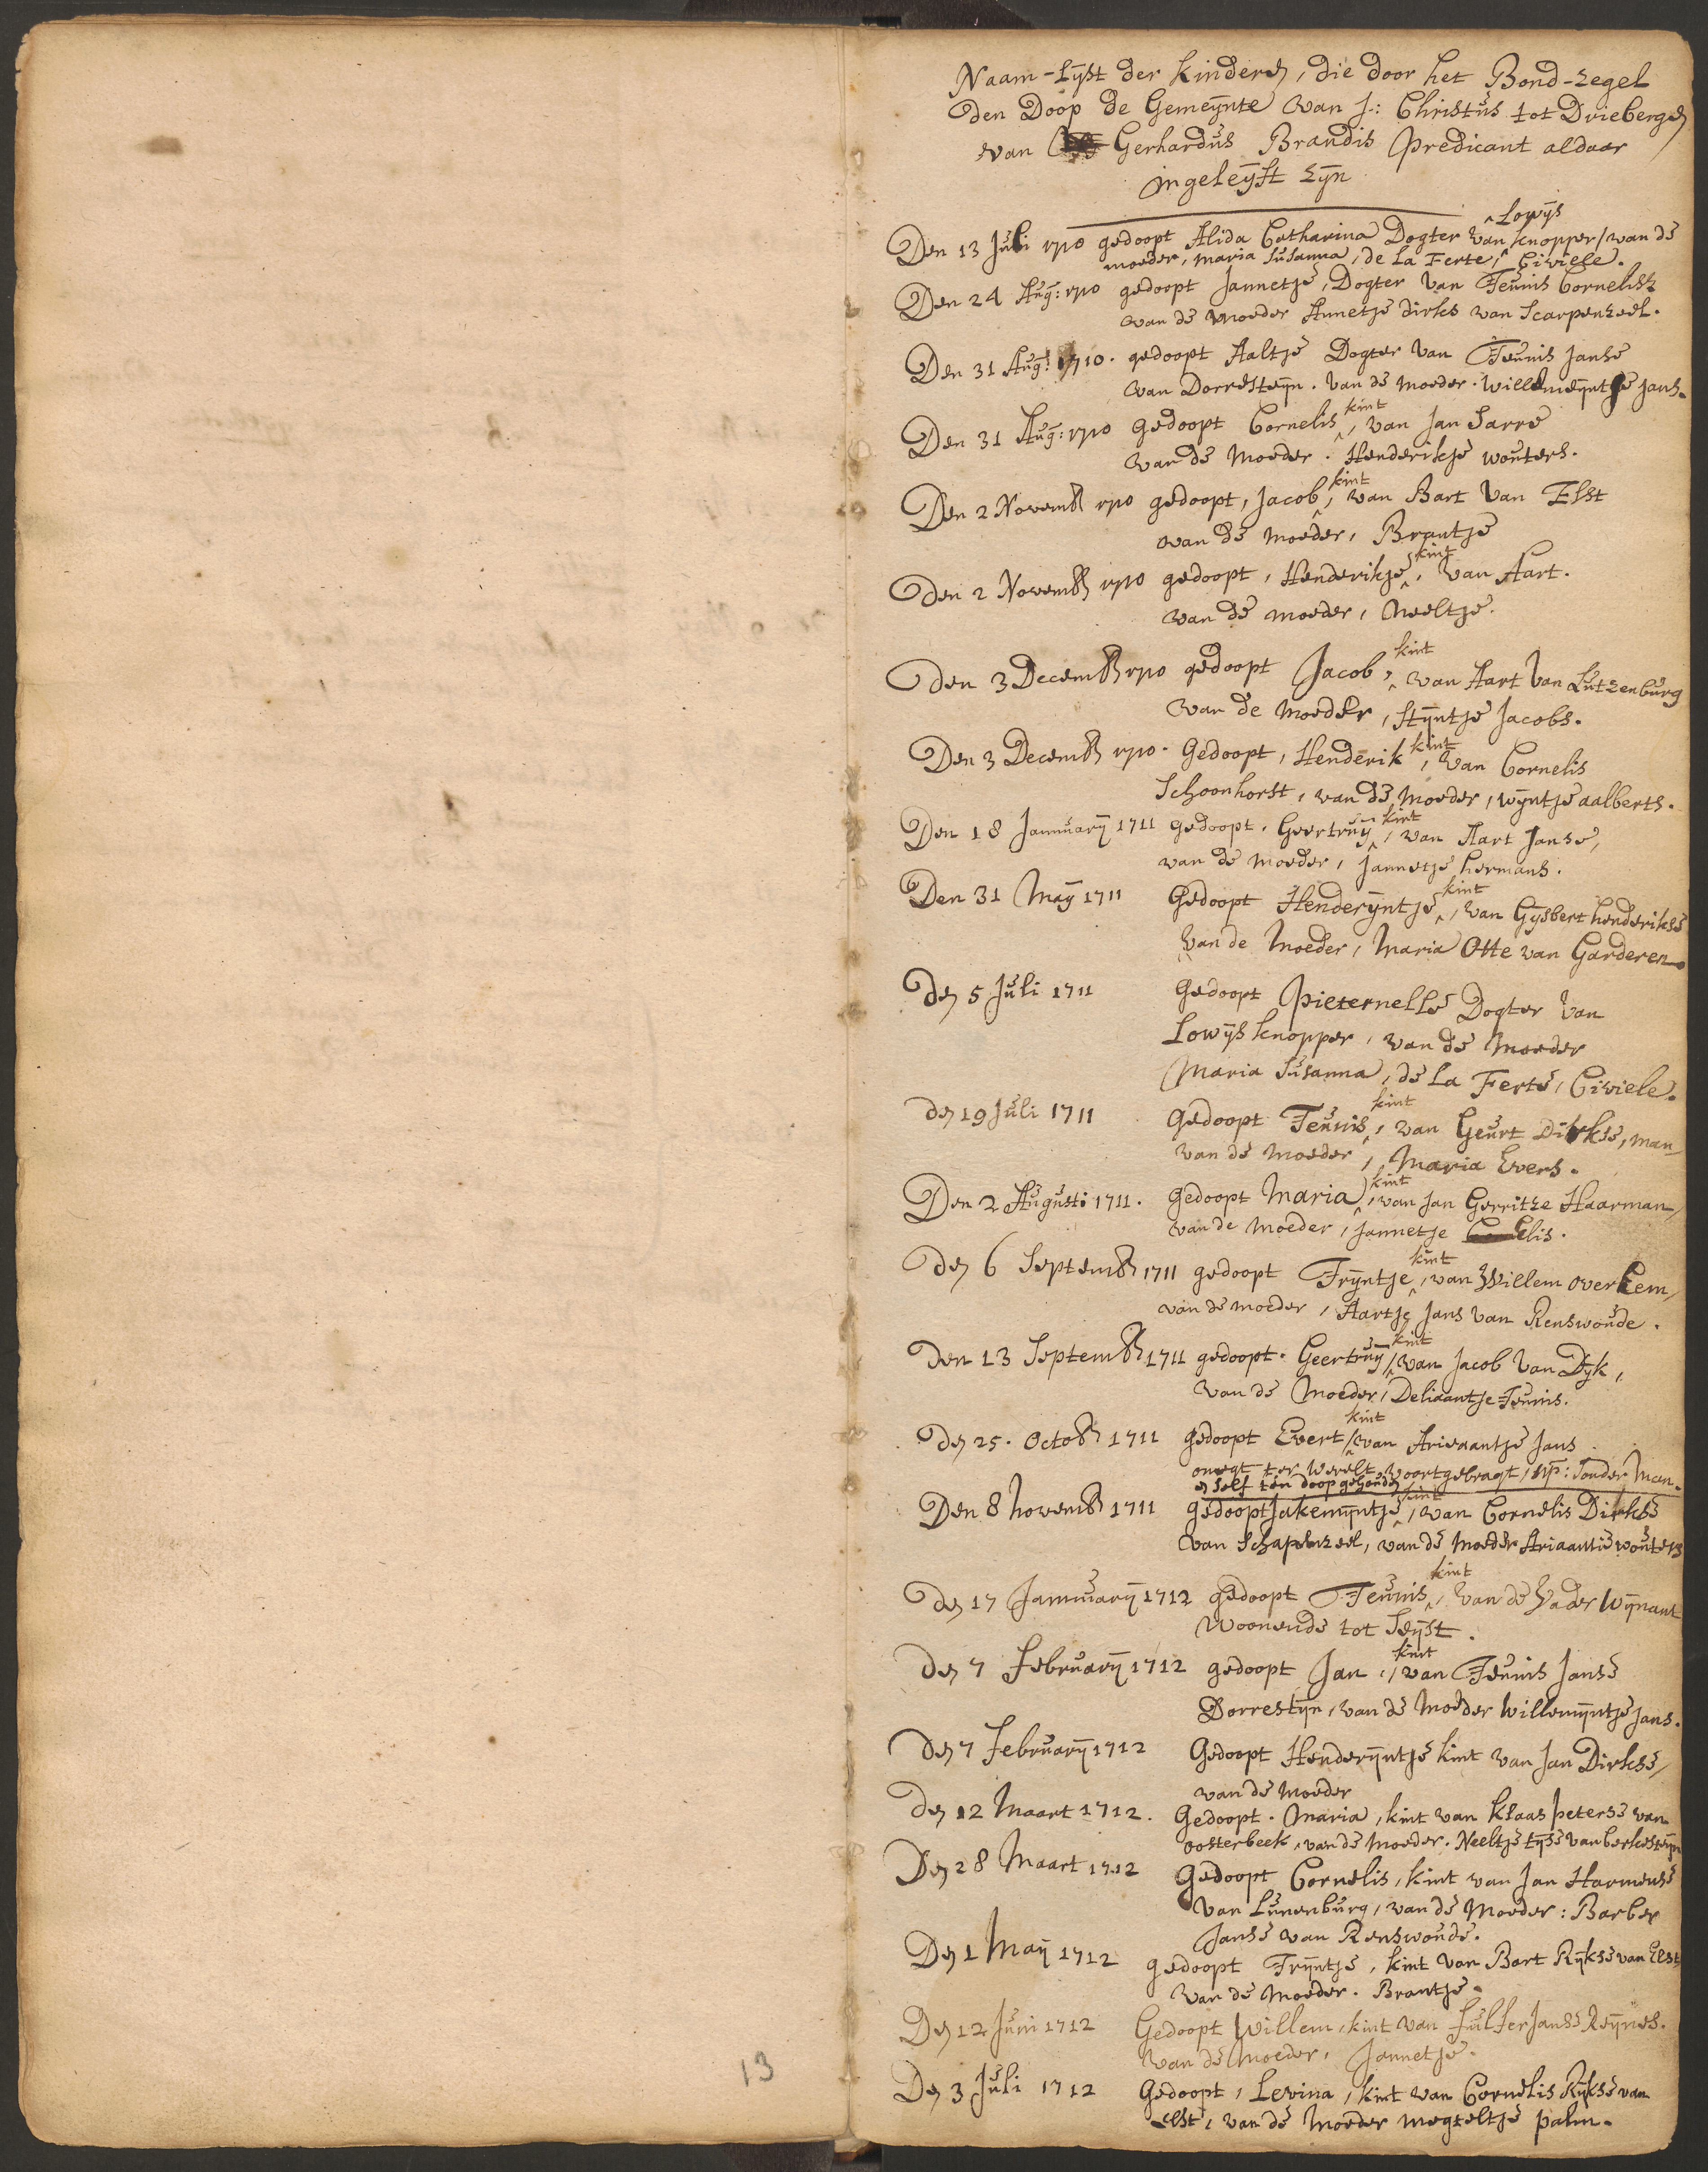 Naam-Lÿst der kinderen, die door het Bond-zegel
den Doop de Gemeÿnte van J: Christus tot Driebergen
van Gerhardus Brandis Predicant aldaar
ingeleÿft zÿn
Lowÿs
Den 13 Juli 1710 gedoopt Alida Catharina Dogter van knopper / van de
moeder, maria Susanna, de La Ferte, Civiele.
Den 24 Aug: 1710 gedoopt Jannetje, Dogter van Teunis Cornelisz
van de moeder Annetje dirks van Scarpenzeel.
Den 31 Aug: 1710. gedoopt Aaltje Dogter van Teunis Janse
van Dorresteÿn. van de moeder. willemeÿntje Jans.
kint
Den 31 Aug: 1710 gedoopt Cornelis, van Jan Sarre
van de moeder. Henderikje wouters.
kint
Den 2 Novemb 1710 gedoopt, Jacob, van Bart van Elst
van de moeder, Brantje
kint
Den 2 Novemb 1710 gedoopt, Henderikje, van Aart.
van de moeder, Neeltje.
kint
Den 3 Decemb 1710 gedoopt Jacob, van Aart van Lutzenburg
van de moeder, Stÿntje Jacobs.
kint
Den 3 Decemb 1710. Gedoopt, Henderik, van Cornelis
Schoonhorst, van de moeder, wÿntje aalberts.
kint
Den 18 Jannuarÿ 1711 gedoopt. Geertruÿ, van Aart Janse,
van de moeder, Jannetje hermans.
kint
Den 31 Maÿ 1711 Gedoopt Henderÿntje, van Gÿsbert henderikse
van de moeder, Maria Otte van Garderen
Den 5 Juli 1711 Gedoopt Pieternelle Dogter van
Lowÿs knopper, van de moeder
Maria Susanna, de La Ferte, Civiele.
kint
den 19 Juli 1711 Gedoopt Teunis, van Geurt Dirkse, man
van de moeder, Maria Evers.
kint
Den 2 Augusti 1711. gedoopt Maria, van Jan Gerritze Haarman
van de moeder, Jannetje elis.
kint
Den 6 Septemb 1711 gedoopt Trÿntje, van Willem overeem
van de moeder, Aartje Jans van Renswoude.
kint
Den 13 Septemb 1711 gedoopt. Geertruÿ, van Jacob van Dÿk,
van de Moeder, Deliaantje Teunis.
kint
Den 25. Octob 1711 gedoopt Evert, van Ariaantje Jans
onegt ter werelt voortgebragt, np: Sonder Man.
en self ten doop gehouden
kint
Den 8 novemb 1711 gedoopt Jakemÿntje, van Cornelis Dirkse
van Schapenzeel, van de moeder Ariaantie wouters
kint
Den 17 Jannuarÿ 1712 gedoopt Teunis, van de vader wÿnant
woonende tot Seÿst.
kint
Den 7 februarÿ 1712 gedoopt Jan, van Teunis Janse
Dorrestÿn, van de Moeder willemÿntje Jans.
Den 7 februarÿ 1712 Gedoopt Henderÿntje kint van Jan Dirkse,
van de moeder
Den 12 Maart 1712. Gedoopt. Maria, kint van klaas peterse van
oosterbeek, van de moeder. Neeltje tÿse van berkesteÿn
Den 28 Maart 1712 Gedoopt Cornelis, kint van Jan Harmense
van Lunenburg, van de Moeder: Barber
Janse van Renswoude.
Den 1 Maÿ 1712 gedoopt Trÿntje, kint van Bart Rÿkse van Elst
van de moeder. Brantje.
Den 12 Juni 1712 Gedoopt Willem, kint van Janse Reÿnes.
van de Moeder, Jannetje.
Den 3 Juli 1712 Gedoopt, Levina, kint van Cornelis Rÿkse van
elst, van de moeder megteltje palm.
13